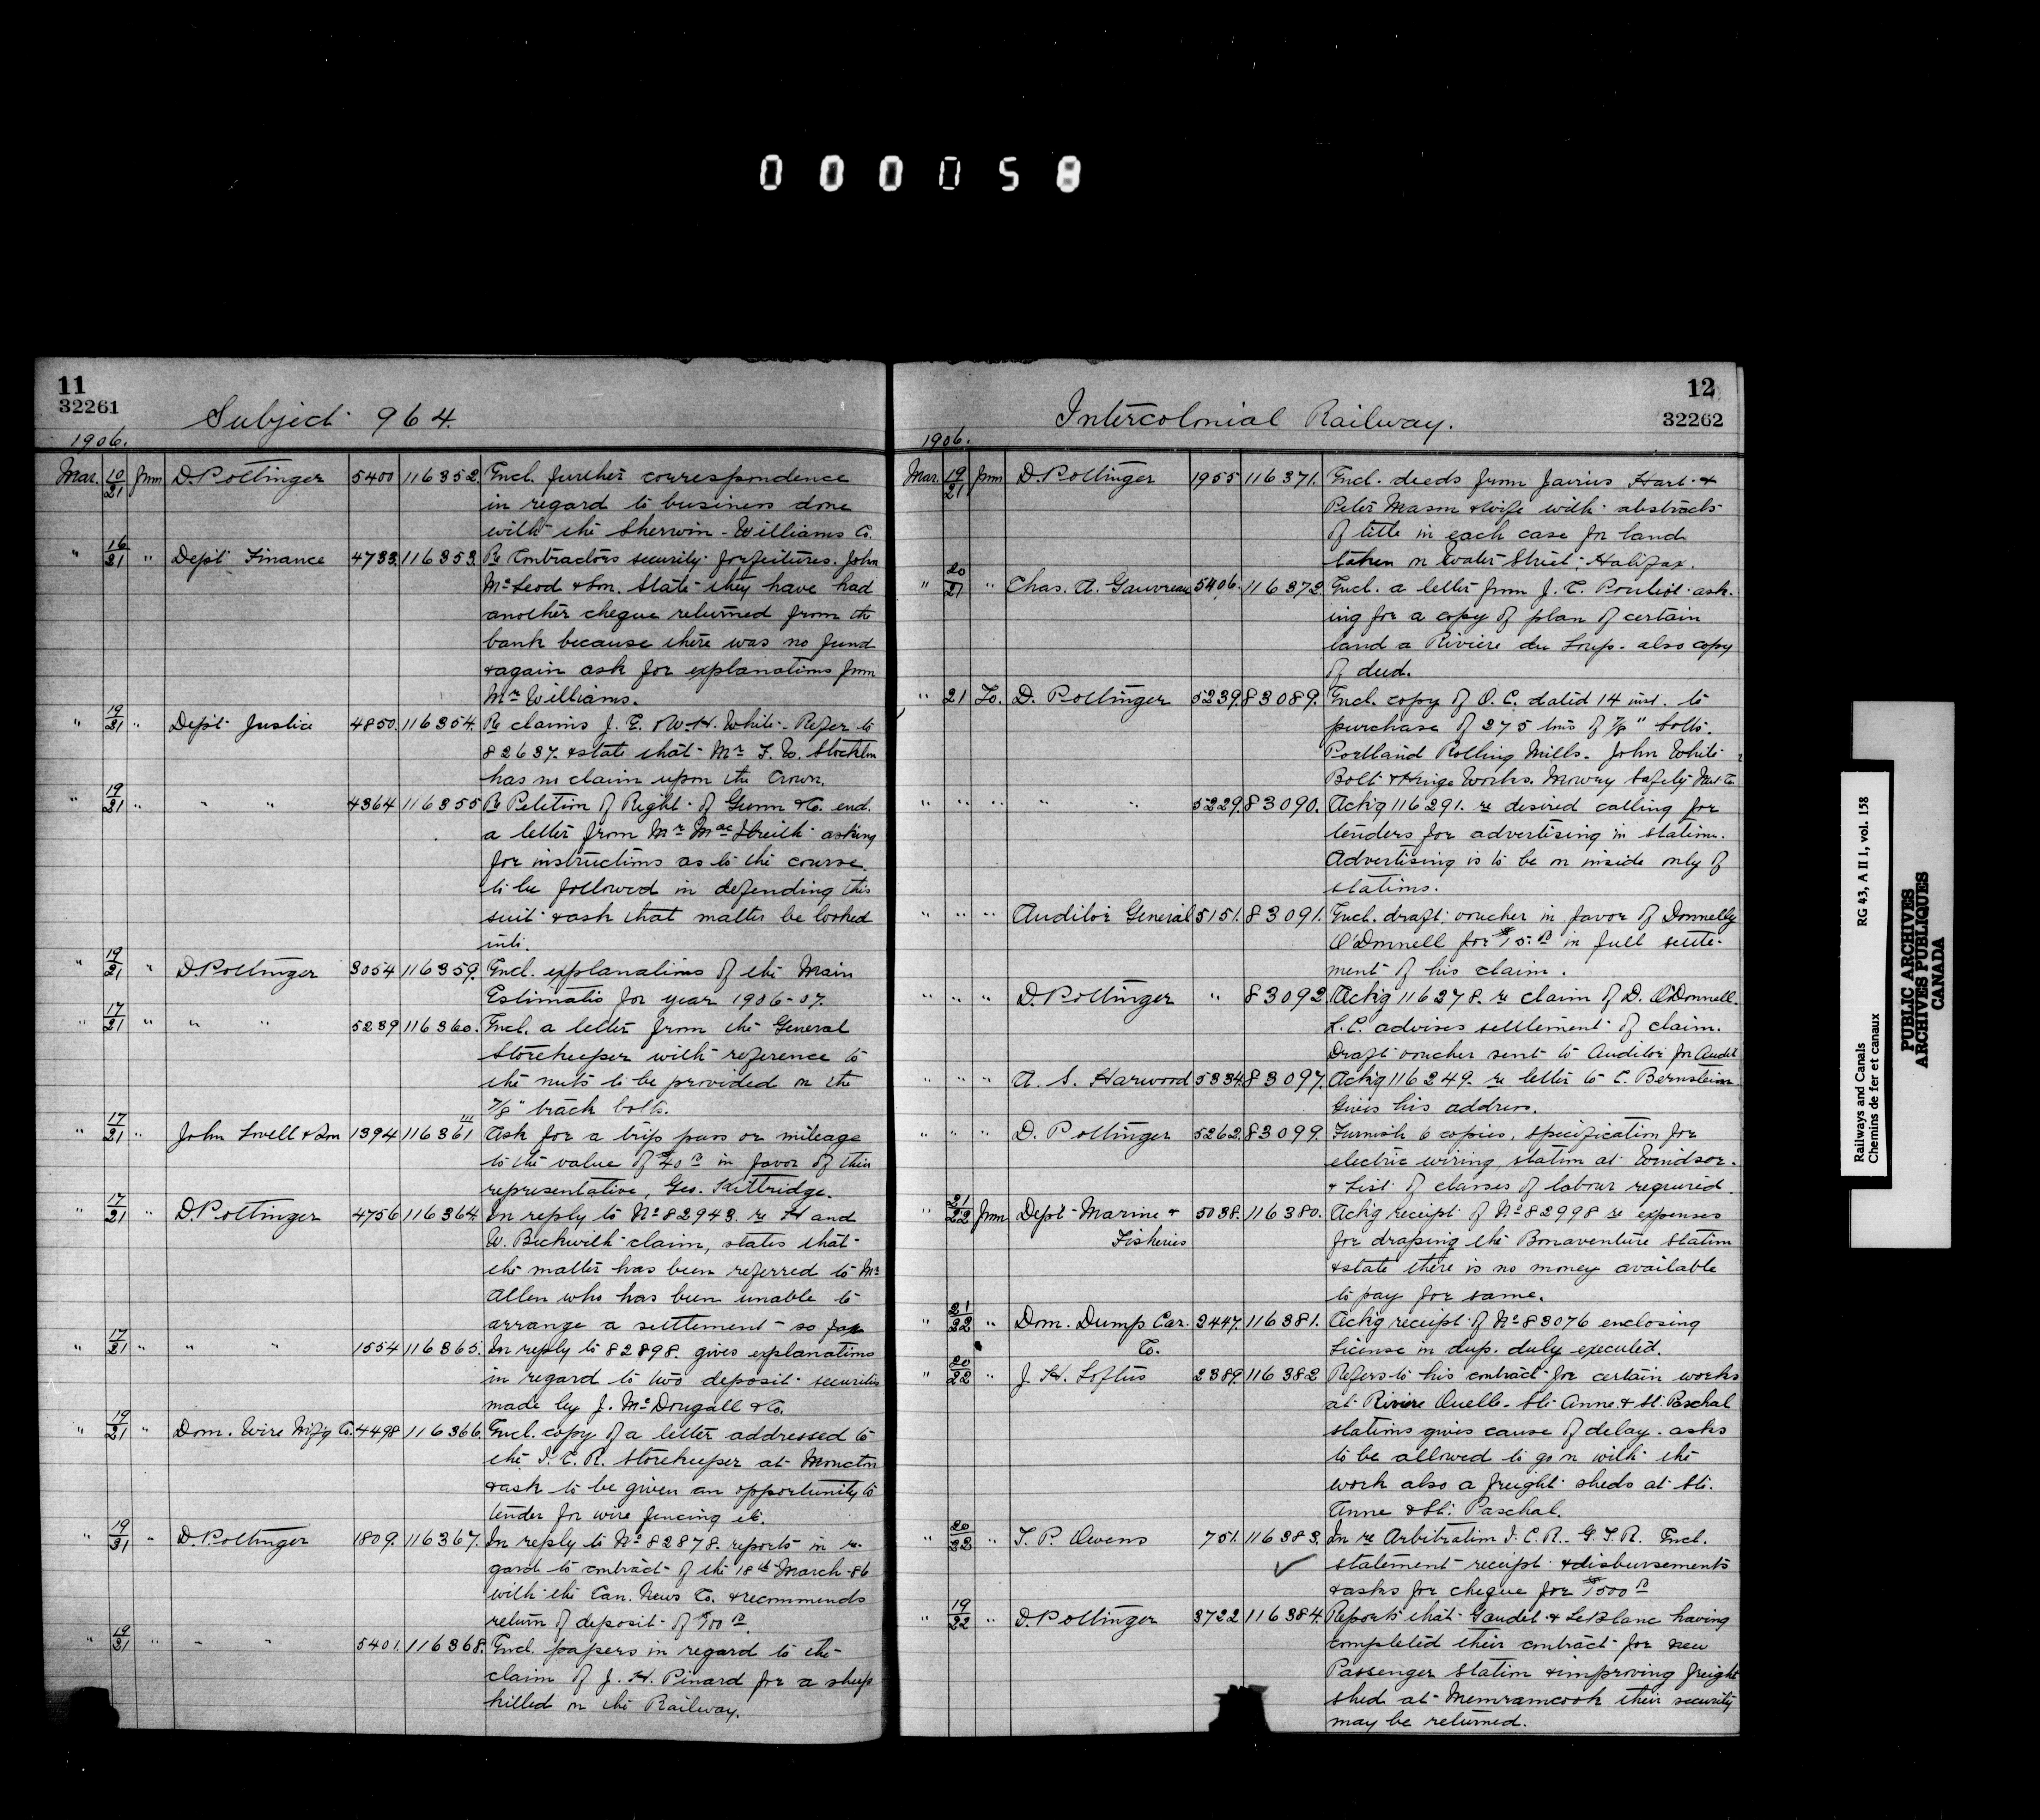 000058
11
32261
Subject 964.
1906.
Mar. 10/21 from D. Pottinger 5400 116352. Encl. further correspondence
in regard to business done
with the Sherwin-Williams Co.
" 16/21 " Dept Finance 4733. 116353. Re Contractors security forfeitures. John
McLeod & Son. State they have had
another cheque returned from the
bank because there was no fund
& again ask for explanations from
Mr Williams.
" 19/21 " Dept Justice 4850. 116354. Re claims J. E. & W. H. White. Refer to
82637. & state that Mr F. W. Stockton
has no claim upon the Crown.
" 19/21 " " " 4364 116355 Re Petition of Right of Gunn & Co. encl.
a letter from Mr asking
for instructions as to the course
to be followed in defending this
suit & ask that matter be looked
into.
" 19/21 " D. Pottinger 3054 116359. Encl. explanations of the Main
Estimates for year 1906-07.
" 17/21 " " " 5239 116360. Encl. a letter from the General
Storekeeper with reference to
the nuts to be provided on the
7/8" track bolts.
" 17/21 " John Lovell & Son 1394 116361 Ask for a trip pass or mileage
to the value of $40 00 in favor of their
representative, Geo. Kittridge.
" 17/21 " D. Pottinger 4756 116364. In reply to No 82943. re H and
W. Beckwith claim, states that
the matter has been referred to Mr
Allen who has been unable to
arrange a settlement so far
" 17/21 " " " 1554 116365. In reply to 82898. gives explanations
in regard to two deposit securities
made by J. McDougall & Co.
" 19/21 " Dom. Wire Mfg Co. 4498 116366. Encl. copy of a letter addressed to
the I. C. R. Storekeeper at Moncton
& ask to be given an opportunity to
tender for wire fencing etc.
" 19/21 " D. Pottinger 1809. 116367. In reply to No 82878. reports in re-
gard to contract of the 18th March 86
with the Can. News Co. & recommends
return of deposit of $100 00.
" 19/21 " " " 5401. 116368. Encl. papers in regard to the
claim of J. H. Pinard for a sheep
killed on the Railway.
12
32262
Intercolonial Railway.
1906.
Mar. 19/21 from D. Pottinger 1955 116371. Encl. deeds from Jairus Hart &
Peter Mason & wife with abstracts
of title in each case for land
taken on Water Street, Halifax.
" 20/21 " Chas. A. Gauvreau 5406. 116372. Encl. a letter from J. C. Pouliot ask-
ing for a copy of plan of certain
land a Riviere du Loup. also copy
of deed.
" 21 To. D. Pottinger 5239. 83089. Encl. copy of O. C. dated 14 inst. to
purchase of 275 tons of 7/8" bolts.
Portland Rolling Mills. John White
Bolt & Hinge Works. Mowry Safety Nut Co.
" " " " " 5229. 83090. Ack'g 116291. re desired calling for
tenders for advertising in stations.
Advertising is to be on inside only of
stations.
" " " Auditor General 5151. 83091. Encl. draft voucher in favor of Donnelly
O'Donnell for $15.00 in full settle-
ment of his claim.
" " " D. Pottinger " 83092. Ack'g 116278. re claim of D. O'Donnell.
L. C. advises settlement of claim.
Draft voucher sent to Auditor for Audit
" " " A. S. Harwood 5334. 83097. Ack'g 116249. re letter to C. Bernstein.
Gives his address.
" " " D. Pottinger 5262. 83099. Furnish 6 copies, specification for
electric wiring station at Windsor.
& List of classes of labour required.
" 21/22 from Dept Marine & 5038. 116380. Ack'g receipt of No 82998 re expenses
Fisheries for draping the Bonaventure Station
& state there is no money available
to pay for same.
" 21/22 " Dom. Dump Car. 2447. 116381. Ack'g receipt of No 83076 enclosing
Co. License in dup. duly executed.
" 20/22 " J. H. Loftus 2389. 116382 Refers to his contract for certain works
at Riviere Ouelle. Ste Anne & St. Paschal
stations gives cause of delay. asks
to be allowed to go on with the
work also a freight sheds at Ste.
Anne & St. Paschal.
" 20/22 " T. P. Owens 751. 116383. In re Arbitration I. C. R. G. T. R. Encl.
statement receipt & disbursements
& asks for cheque for $1500 00
" 19/22 " D. Pottinger 3722 116384. Reports that Gaudet & LeBlanc having
completed their contract for new
Passenger Station & improving freight
shed at Memramcook their security
may be returned.
Railways and Canals RG 43, A II 1, vol. 158
Chemins de fer et canaux
PUBLIC ARCHIVES
ARCHIVES PUBLIQUES
CANADA